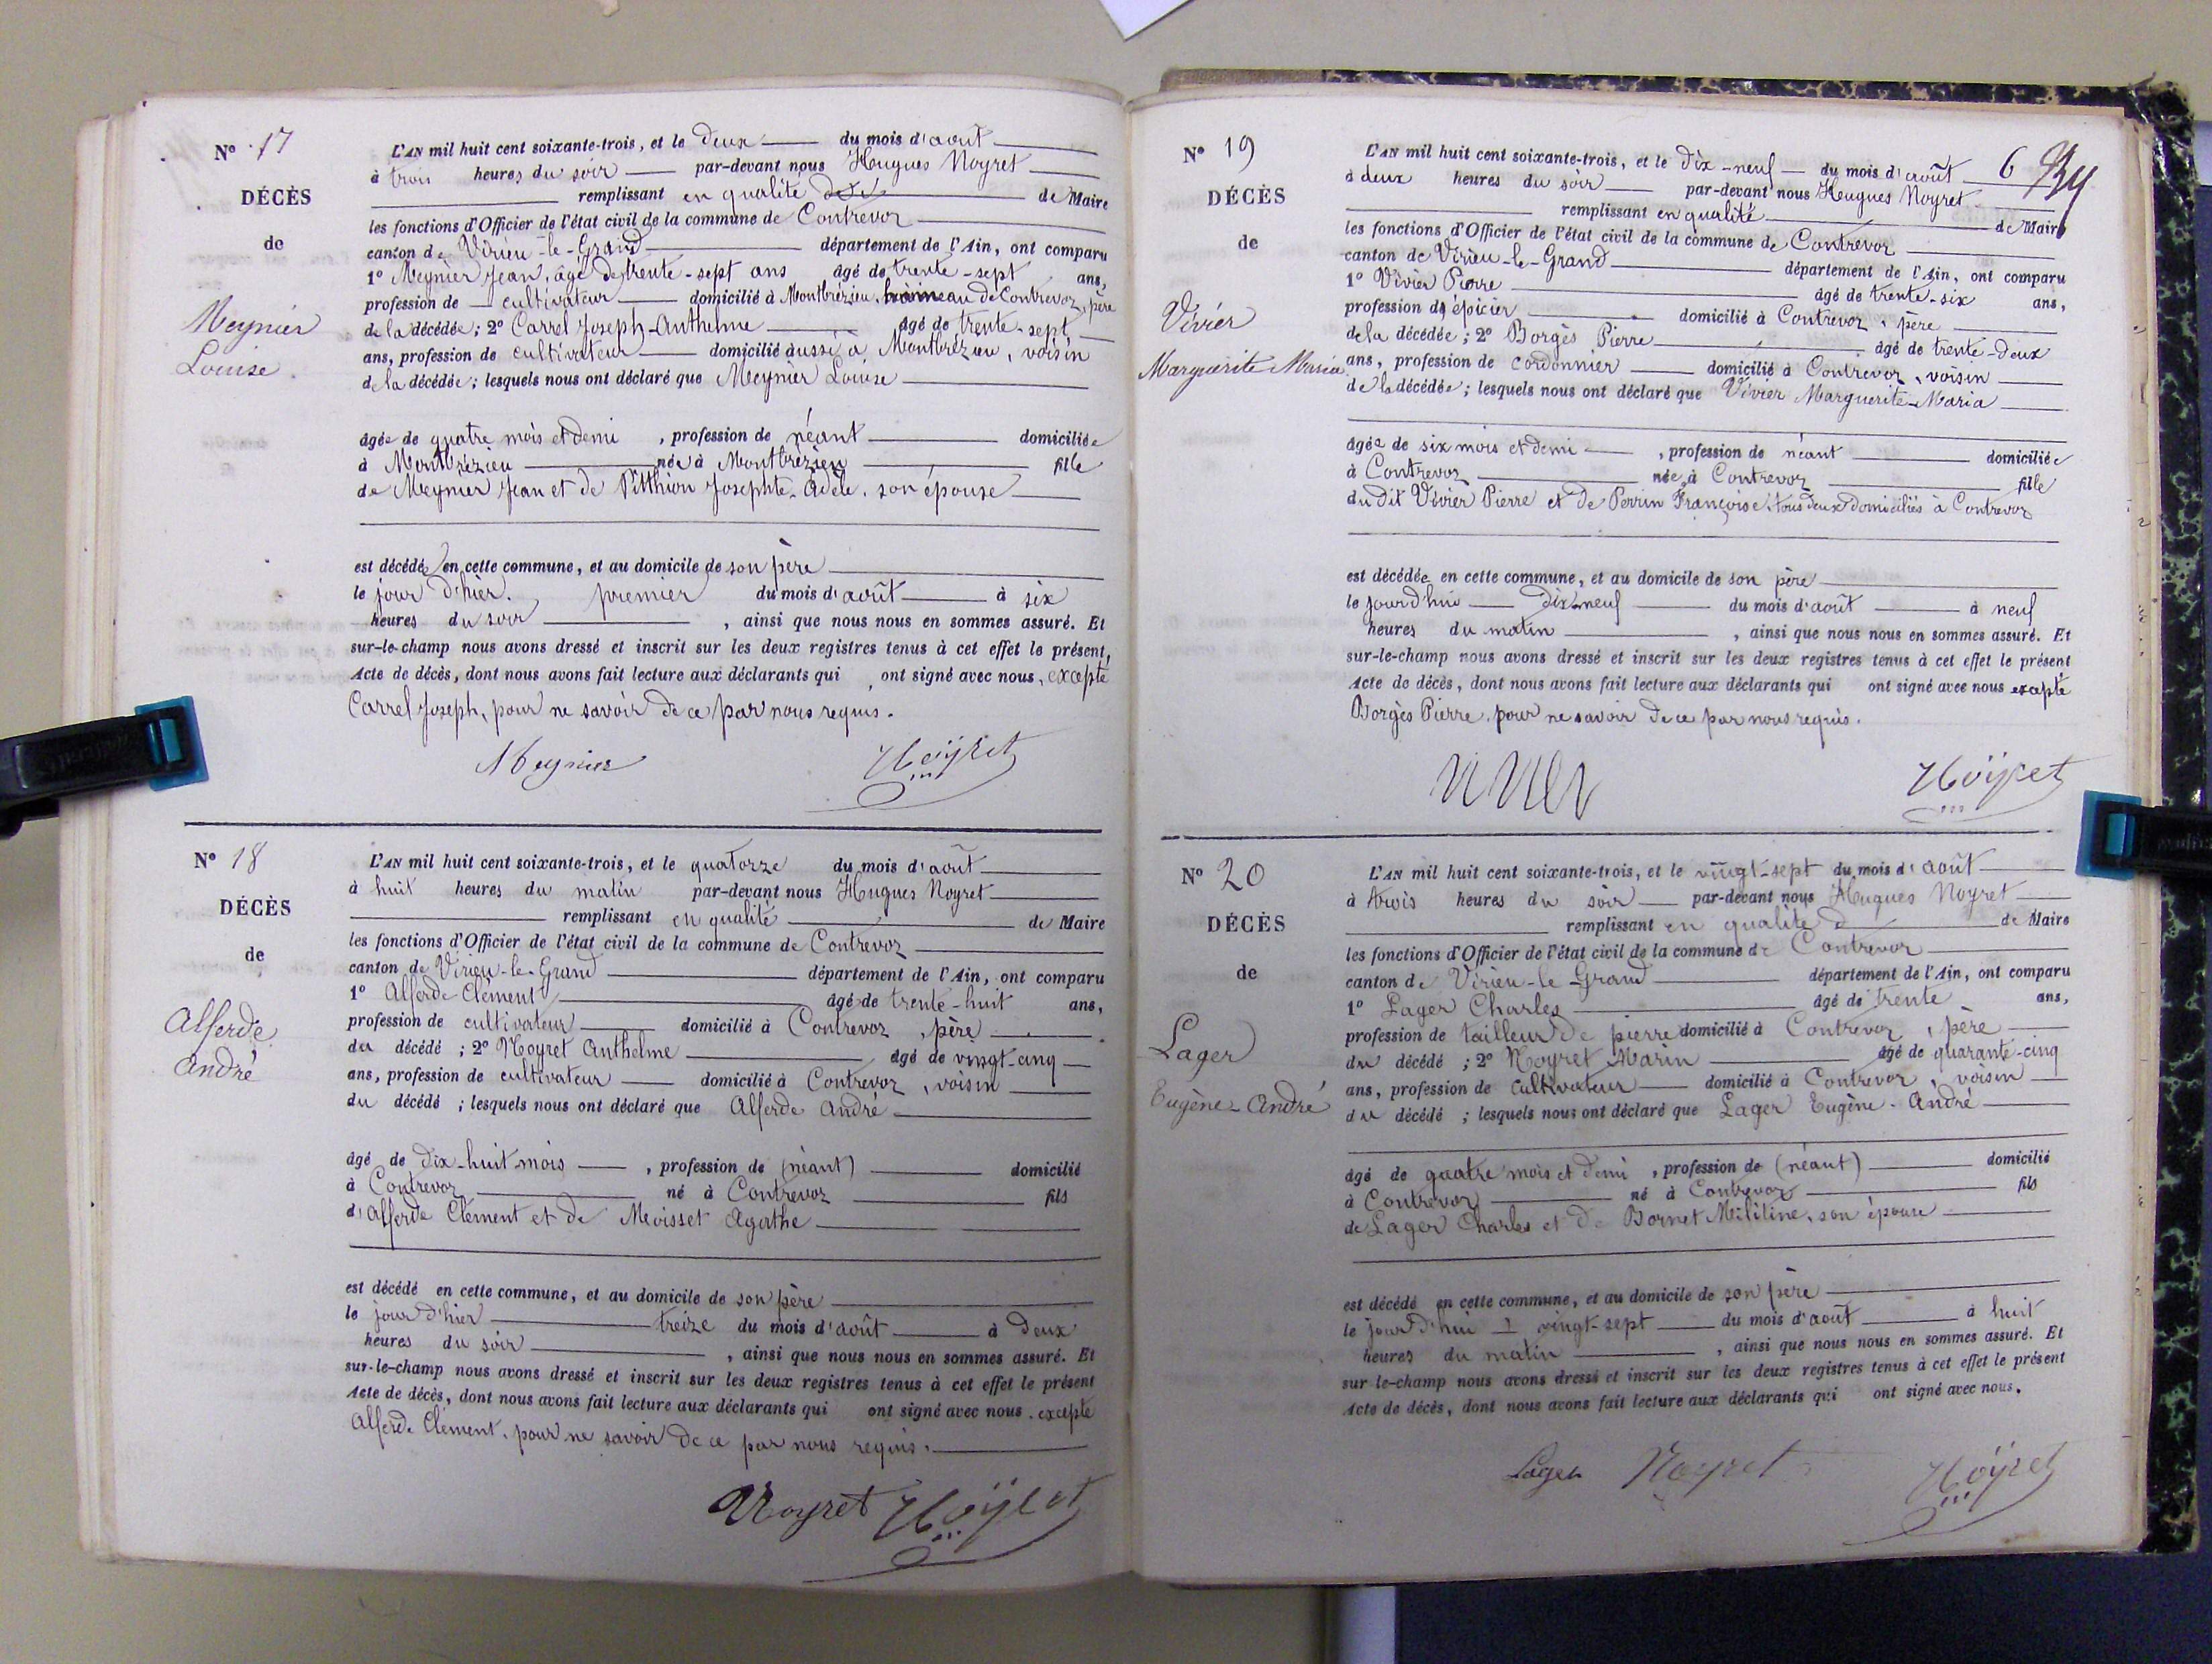 N° 17
DÉCÈS
de
Meynier
Louise.
L'AN mil huit cent soixante-trois, et le deux du mois d'août
à trois heures du soir par-devant nous Hugues Noyret
remplissant en qualité de Maire
les fonctions d'Officier de l'état civil de la commune de Contrevoz
canton de Virieu-le-Grand département de l'Ain, ont comparu
1° Meynier Jean, âgé de trente-sept ans âgé de trente-sept ans,
profession de cultivateur domicilié à Montbrézieu, hameau de Contrevoz, père
de la décédée; 2° Carrel Joseph-Anthelme âgé de trente-sept
ans, profession de cultivateur domicilié aussi à Montbrézieu, voisin
de la décédée; lesquels nous ont déclaré que Meynier Louise
âgée de quatre mois et demi, profession de néant domiciliée
à Montbrézieu née à Montbrézieu fille
de Meynier Jean et de Pitthion Josephte-Adèle, son épouse
est décédée en cette commune, et au domicile de son père
le jour d'hier, premier du mois d'août à six
heures du soir, ainsi que nous nous en sommes assuré. Et
sur-le-champ nous avons dressé et inscrit sur les deux registres tenus à cet effet le présent,
Acte de décès, dont nous avons fait lecture aux déclarants qui, ont signé avec nous, excepté
Carrel Joseph, pour ne savoir de ce par nous requis.
Meynier Noyret
N° 18
DÉCÈS
de
Alferde
André
L'AN mil huit cent soixante-trois, et le quatorze du mois d'août
à huit heures du matin par-devant nous Hugues Noyret
remplissant en qualité de Maire
les fonctions d'Officier de l'état civil de la commune de Contrevoz
canton de Virieu-le-Grand département de l'Ain, ont comparu
1° Alferde Clément âgé de trente-huit ans,
profession de cultivateur domicilié à Contrevoz, père
du décédé; 2° Noyret Anthelme âgé de vingt-cinq
ans, profession de cultivateur domicilié à Contrevoz, voisin
du décédé; lesquels nous ont déclaré que Alferde André
âgé de dix-huit mois, profession de (néant) domicilié
à Contrevoz né à Contrevoz fils
d'Alferde Clément et de Moisset Agathe
est décédé en cette commune, et au domicile de son père
le jour d'hier treize du mois d'août à deux
heures du soir, ainsi que nous nous en sommes assuré. Et
sur-le-champ nous avons dressé et inscrit sur les deux registres tenus à cet effet le présent
Acte de décès, dont nous avons fait lecture aux déclarants qui ont signé avec nous, excepté
Alferde Clément, pour ne savoir de ce par nous requis.
Noyret Noyret
N° 19
DÉCÈS
de
Vivier
Marguerite-Maria
6
L'AN mil huit cent soixante-trois, et le dix-neuf du mois d'août
à deux heures du soir par-devant nous Hugues Noyret
remplissant en qualité de Maire
les fonctions d'Officier de l'état civil de la commune de Contrevoz
canton de Virieu-le-Grand département de l'Ain, ont comparu
1° Vivier Pierre âgé de trente-six ans,
profession d'épicier domicilié à Contrevoz, père
de la décédée; 2° Borgès Pierre âgé de trente-deux
ans, profession de cordonnier domicilié à Contrevoz, voisin
de la décédée; lesquels nous ont déclaré que Vivier Marguerite-Maria
âgée de six mois et demi, profession de néant domiciliée
à Contrevoz née à Contrevoz fille
du dit Vivier Pierre et de Perrin Françoise, tous deux domiciliés à Contrevoz
est décédée en cette commune, et au domicile de son père
le jourd'hui dix-neuf du mois d'août à neuf
heures du matin, ainsi que nous nous en sommes assuré. Et
sur-le-champ nous avons dressé et inscrit sur les deux registres tenus à cet effet le présent
Acte de décès, dont nous avons fait lecture aux déclarants qui ont signé avec nous excepté
Borgès Pierre, pour ne savoir de ce par nous requis.
Vivier Noyret
N° 20
DÉCÈS
de
Lager
Eugène-André
L'AN mil huit cent soixante-trois, et le vingt-sept du mois d'août
à trois heures du soir par-devant nous Hugues Noyret
remplissant en qualité d de Maire
les fonctions d'Officier de l'état civil de la commune de Contrevoz
canton de Virieu-le-Grand département de l'Ain, ont comparu
1° Lager Charles âgé de trente ans,
profession de tailleur de pierre domicilié à Contrevoz, père
du décédé; 2° Noyret Marin âgé de quarante-cinq
ans, profession de cultivateur domicilié à Contrevoz, voisin
du décédé; lesquels nous ont déclaré que Lager Eugène-André
âgé de quatre mois et demi, profession de (néant) domicilié
à Contrevoz né à Contrevoz fils
de Lager Charles et de Bornet Mélitine, son épouse
est décédé en cette commune, et au domicile de son père
le jourd'hui vingt-sept du mois d'août à huit
heures du matin, ainsi que nous nous en sommes assuré. Et
sur-le-champ nous avons dressé et inscrit sur les deux registres tenus à cet effet le présent
Acte de décès, dont nous avons fait lecture aux déclarants qui ont signé avec nous.
Lager Noyret Noyret